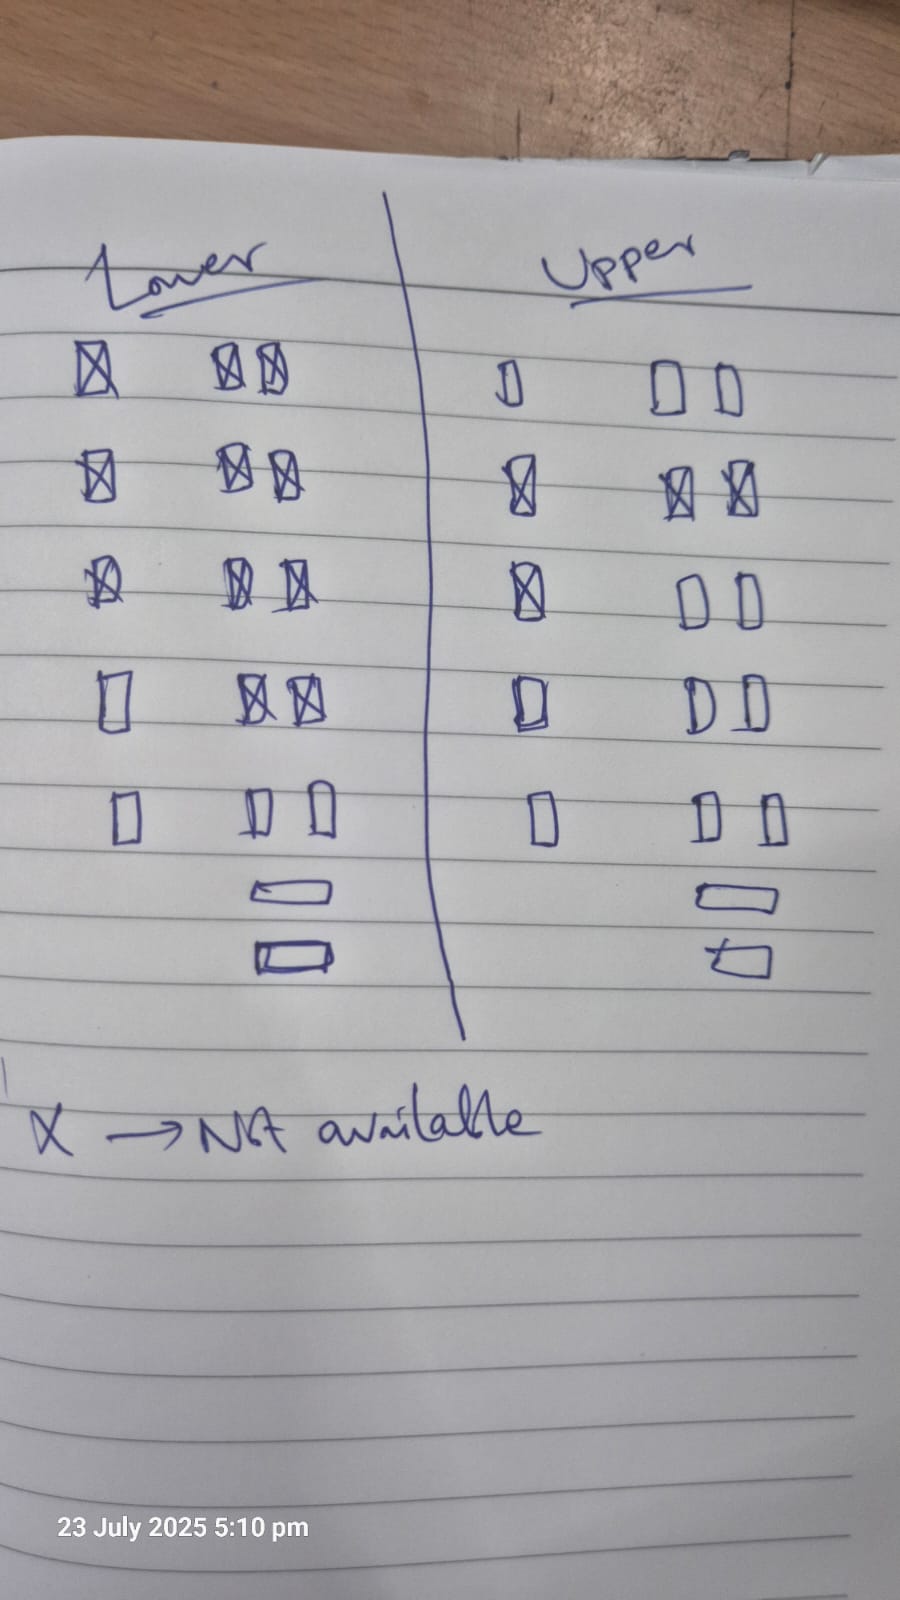 Lower Upper
X → Not available
23 July 2025 5:10 pm